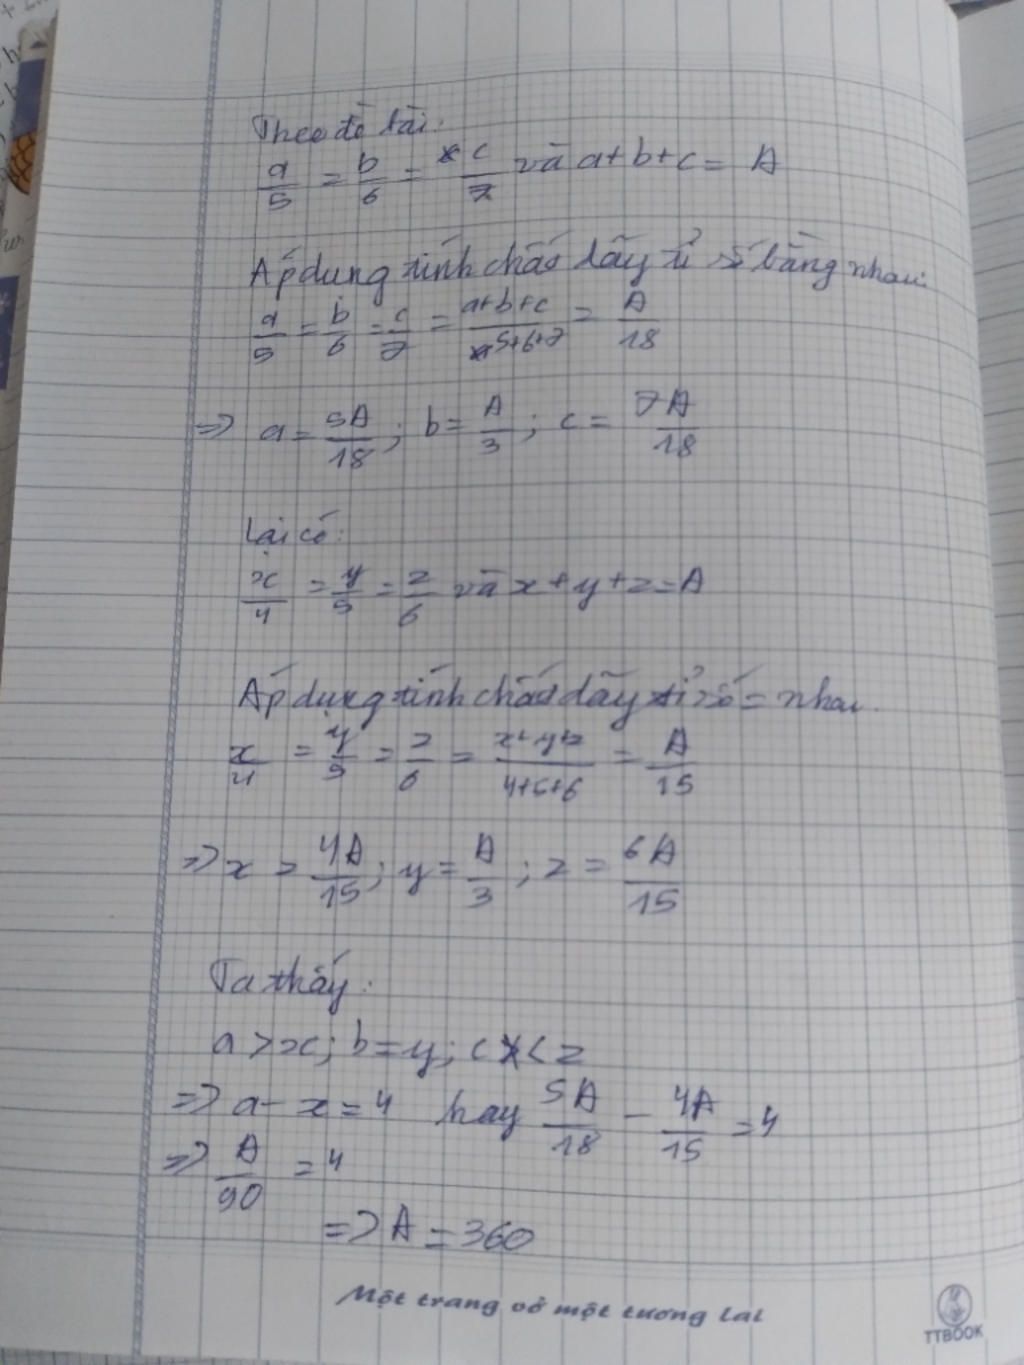 Theo đề bài:
a/5 = b/6 = c/7 và a+b+c = A
Áp dụng tính chất dãy tỉ số bằng nhau:
a/5 = b/6 = c/7 = (a+b+c)/(5+6+7) = A/18
=> a = 5A/18; b = A/3; c = 7A/18
Lại có:
x/4 = y/5 = z/6 và x+y+z=A
Áp dụng tính chất dãy tỉ số = nhau.
x/4 = y/5 = z/6 = (x+y+z)/(4+5+6) = A/15
=> x = 4A/15; y = A/3; z = 6A/15
Ta thấy:
a>x; b=y; c<z
=> a-x=4 hay 5A/18 - 4A/15 = 4
=> A/90 = 4
=> A = 360
Một trang vở một tương lai
TTBOOK